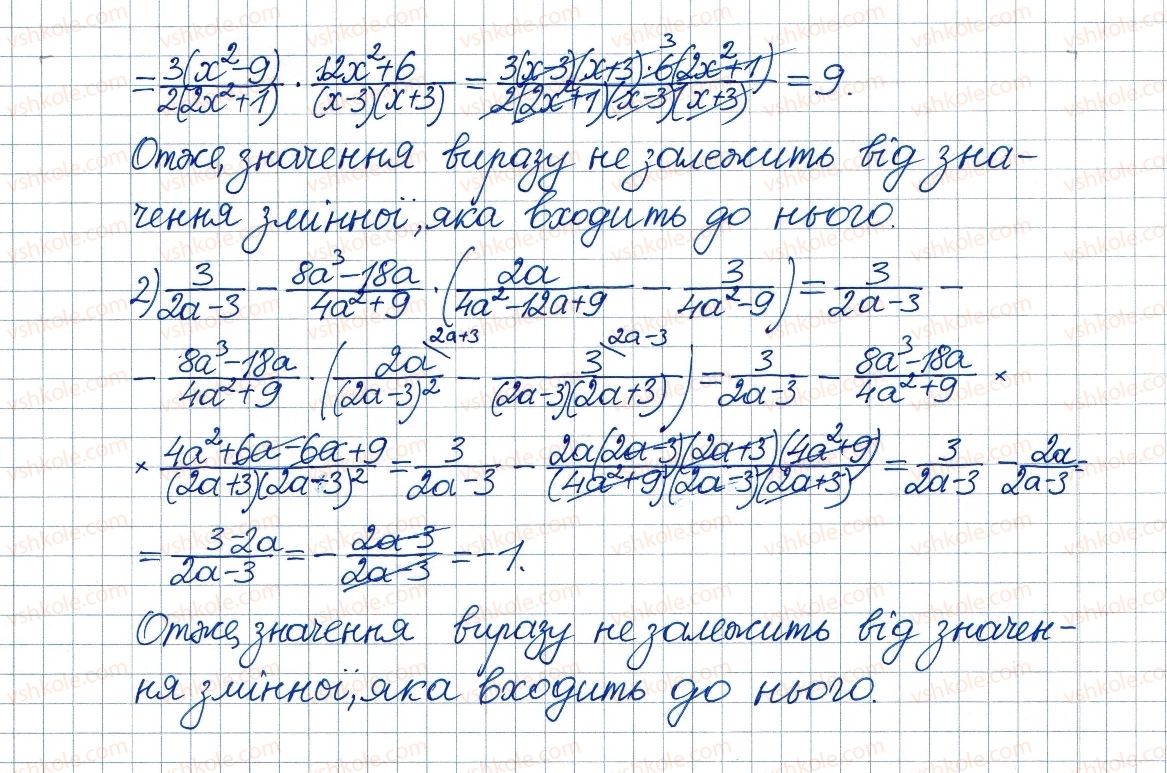 = 3(x²-9)/2(2x²+1) · 12x²+6/(x-3)(x+3) = 3(x-3)(x+3)·6³(2x²+1)/2(2x²+1)(x-3)(x+3) = 9.
Отже, значення виразу не залежить від зна-
чення змінної, яка входить до нього.
2) 3/2a-3 - 8a³-18a/4a²+9 · (2a/4a²-12a+9 - 3/4a²-9) = 3/2a-3 -
- 8a³-18a/4a²+9 · (2a\2a+3/(2a-3)² - 3\2a-3/(2a-3)(2a+3)) = 3/2a-3 - 8a³-18a/4a²+9 ×
× 4a²+6a-6a+9/(2a+3)(2a-3)² = 3/2a-3 - 2a(2a-3)(2a+3)(4a²+9)/(4a²+9)(2a-3)²(2a+3) = 3/2a-3 - 2a/2a-3 =
= 3-2a/2a-3 = - 2a-3/2a-3 = -1.
Отже, значення виразу не залежить від значен-
ня змінної, яка входить до нього.